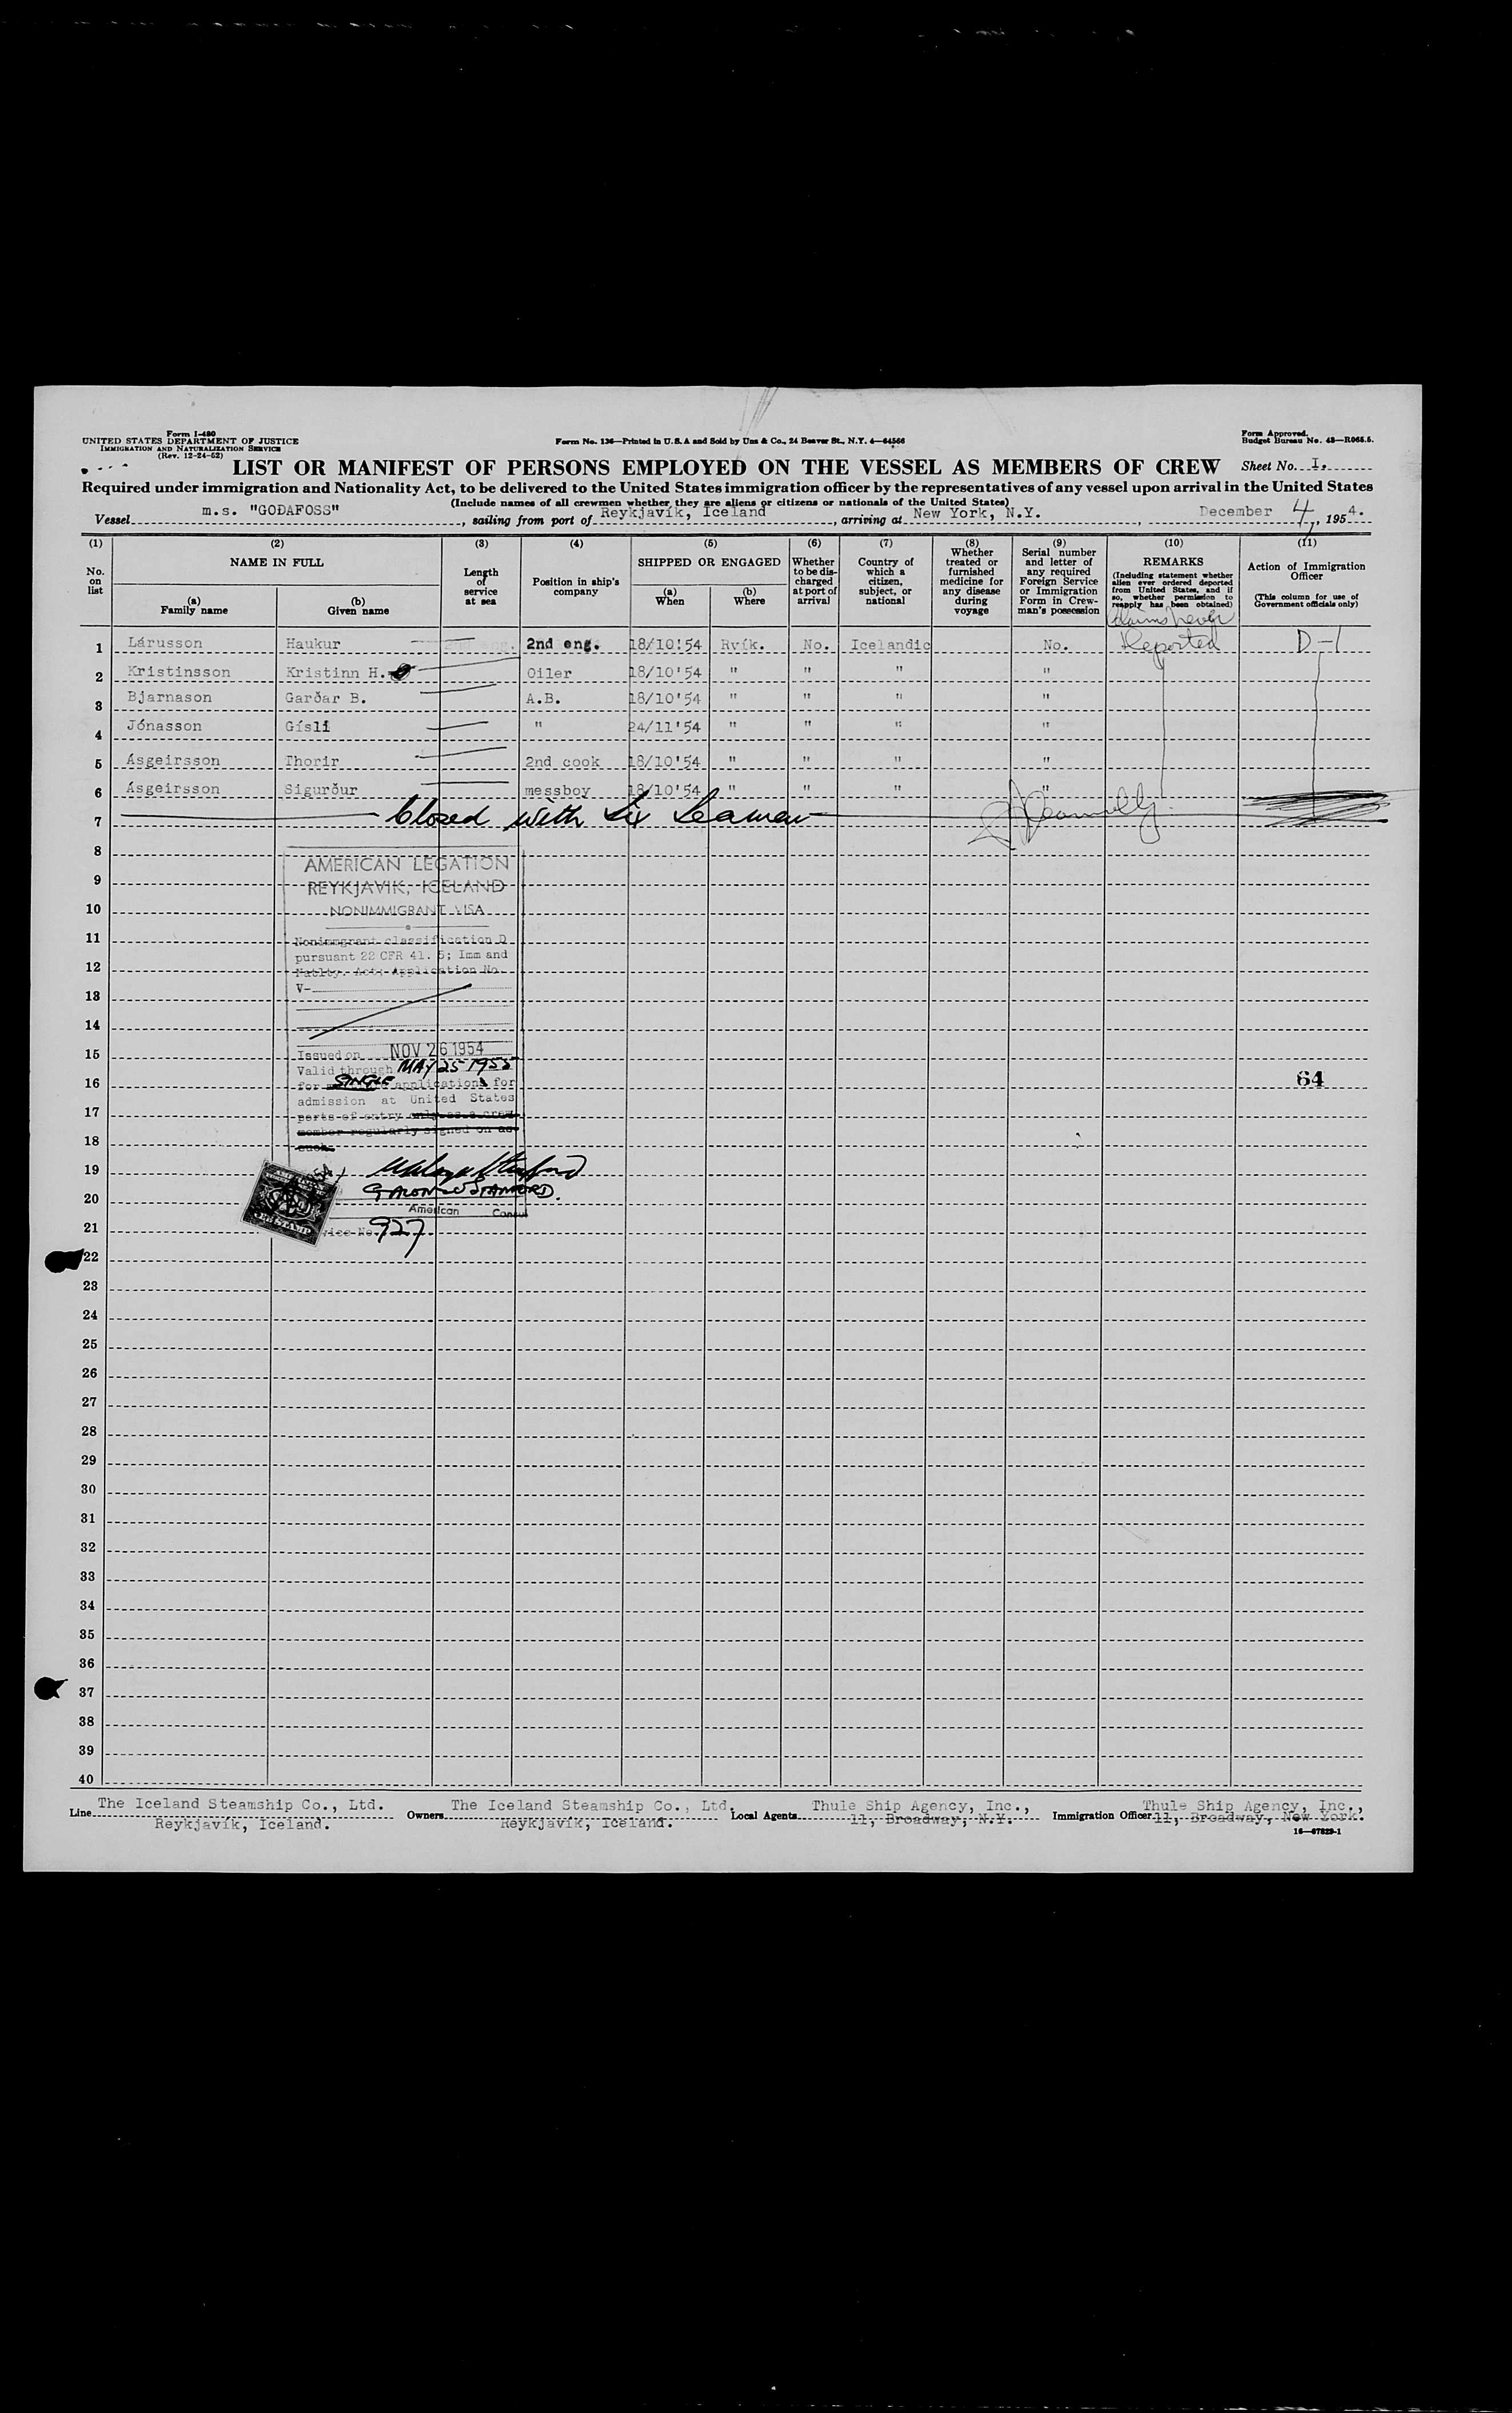 Form I-480
UNITED STATES DEPARTMENT OF JUSTICE
IMMIGRATION AND NATURALIZATION SERVICE
(Rev. 12-24-52)
Form No. 136—Printed in U.S.A and Sold by Unz & Co., 24 Beaver St., N.Y. 4—64566
Form Approved.
Budget Bureau No. 43—R065.5.
LIST OR MANIFEST OF PERSONS EMPLOYED ON THE VESSEL AS MEMBERS OF CREW Sheet No. I.
Required under immigration and Nationality Act, to be delivered to the United States immigration officer by the representatives of any vessel upon arrival in the United States
(Include names of all crewmen whether they are aliens or citizens or nationals of the United States)
Vessel m.s. "GOÐAFOSS", sailing from port of Reykjavík, Iceland, arriving at New York, N.Y., December 4, 1954.
(1) No. on list
(2) NAME IN FULL
(a) Family name
(b) Given name
(3) Length of service at sea
(4) Position in ship's company
(5) SHIPPED OR ENGAGED
(a) When
(b) Where
(6) Whether to be discharged at port of arrival
(7) Country of which a citizen, subject, or national
(8) Whether treated or furnished medicine for any disease during voyage
(9) Serial number and letter of any required Foreign Service or Immigration Form in Crewman's possession
(10) REMARKS
(Including statement whether alien ever ordered deported from United States, and if so, whether permission to reapply has been obtained)
(11) Action of Immigration Officer
(This column for use of Government officials only)
Claims never
1 Lárusson Haukur 2nd eng. 18/10'54 Rvík. No. Icelandic No. Deported D-1
2 Kristinsson Kristinn H. Oiler 18/10'54 " " " "
3 Bjarnason Garðar B. A.B. 18/10'54 " " " "
4 Jónasson Gísli " 24/11'54 " " " "
5 Ásgeirsson Thorir 2nd cook 18/10'54 " " " "
6 Ásgeirsson Sigurður messboy 18/10'54 " " " "
7 Closed with Six Seamen
8
AMERICAN LEGATION
9
REYKJAVIK, ICELAND
10
NONIMMIGRANT VISA
11
Nonimmgrant classification D
pursuant 22 CFR 41. 5; Imm and
12
Natlty. Act; Application No.
13
V-
14
15
Issued on NOV 26 1954
Valid through MAY 25 1955
16
for SINGLE applications for
64
admission at United States
17
ports of entry only as a crew
member regularly signed on as
18
such.
19
20
American Consul
21
vice No. 927
22
23
24
25
26
27
28
29
30
31
32
33
34
35
36
37
38
39
40
Line The Iceland Steamship Co., Ltd. Reykjavík, Iceland.
Owners The Iceland Steamship Co., Ltd. Reykjavík, Iceland.
Local Agents Thule Ship Agency, Inc., 11, Broadway, N.Y.
Immigration Officer Thule Ship Agency, Inc., 11, Broadway, New York.
16—67829-1